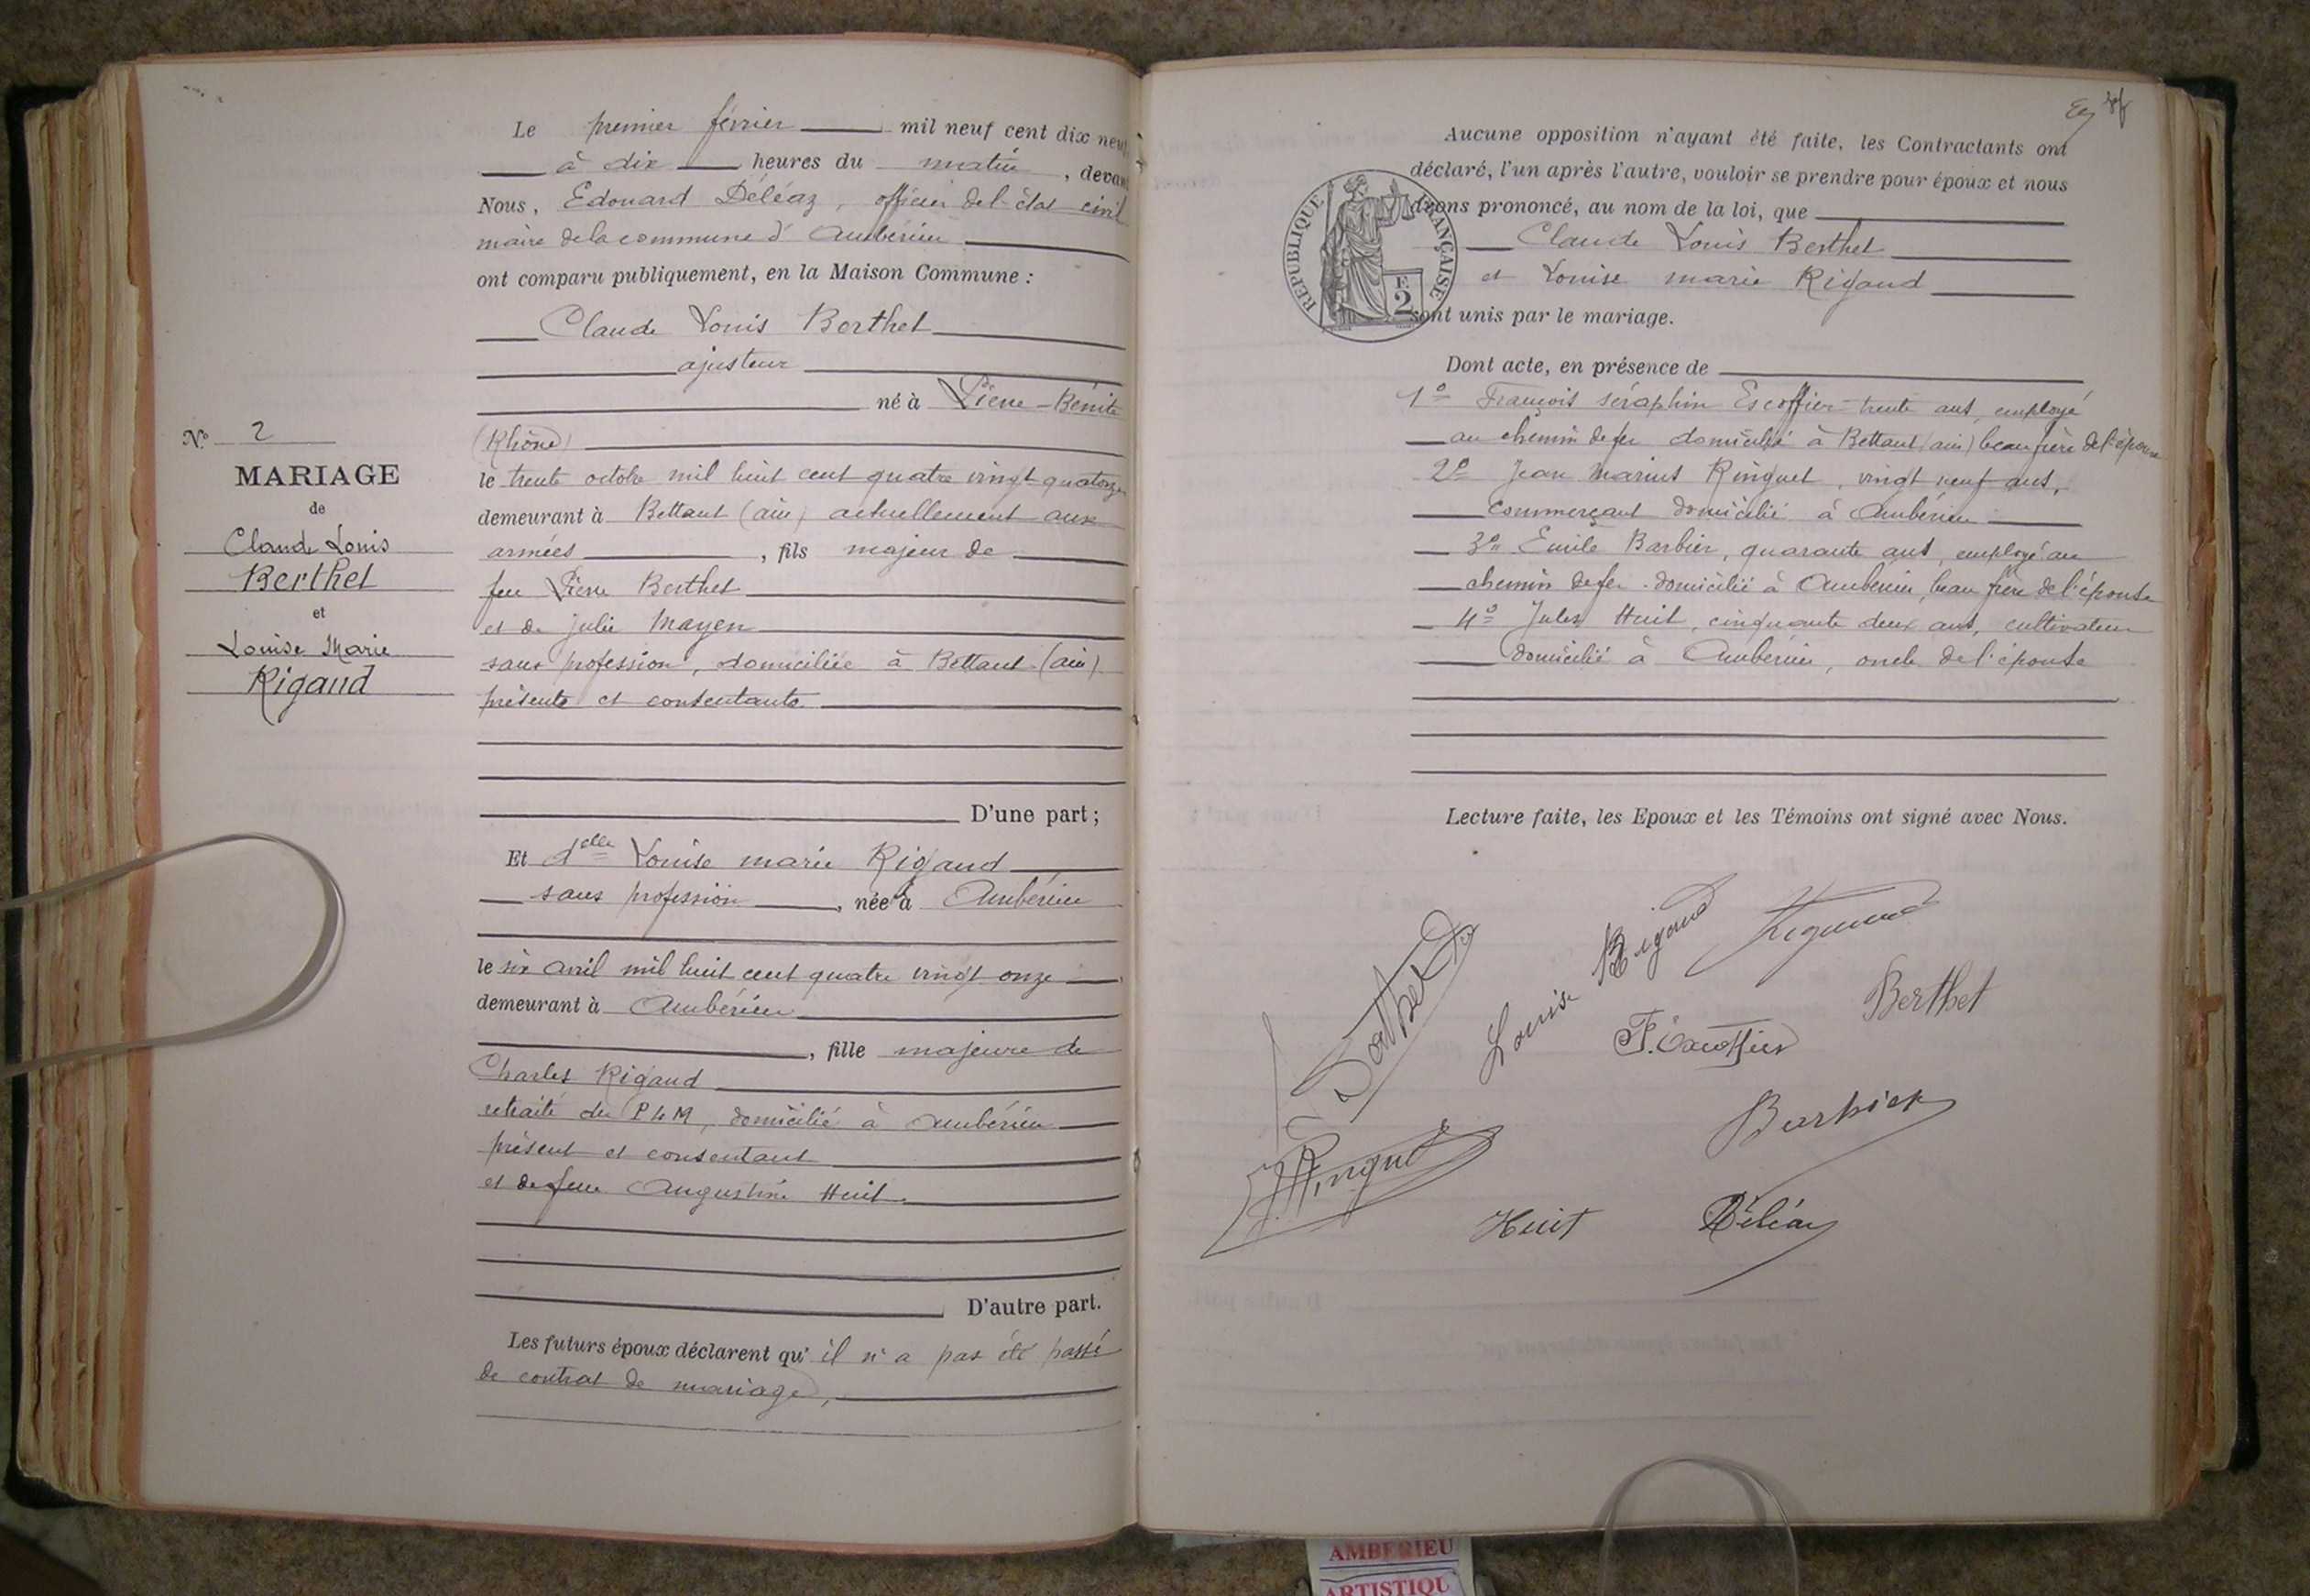 Le premier février mil neuf cent dix neuf
à dix heures du matin, devant
Nous, Edouard Déléaz, officier de l'état civil
maire de la commune d'Ambérieu
ont comparu publiquement, en la Maison Commune :
Claude Louis Berthet
ajusteur
né à Pierre-Bénite
(Rhône)
le trente octobre mil huit cent quatre vingt quatorze
demeurant à Bettant (ain) actuellement aux
armées, fils majeur de
feu Pierre Berthet
et de Julie Mayen
sans profession, domiciliée à Bettant (ain)
présente et consentante
D'une part ;
Et delle Louise marie Rigaud
sans profession, née à Ambérieu
le six avril mil huit cent quatre vingt onze
demeurant à Ambérieu
, fille majeure de
Charles Rigaud
retraité du PLM, domicilié à Ambérieu
présent et consentant
et de feue Augustine Huit
D'autre part.
Les futurs époux déclarent qu'il n'a pas été passé
de contrat de mariage,
N° 2
MARIAGE
de
Claude Louis
Berthet
et
Louise Marie
Rigaud
Aucune opposition n'ayant été faite, les Contractants ont
déclaré, l'un après l'autre, vouloir se prendre pour époux et nous
avons prononcé, au nom de la loi, que
Claude Louis Berthet
et Louise marie Rigaud
sont unis par le mariage.
RÉPUBLIQUE FRANÇAISE
E
2
Dont acte, en présence de
1° François séraphin Escoffier trente ans, employé
au chemin de fer domicilié à Bettant (ain) beau frère de l'épouse
2° Jean Marius Ringuet, vingt neuf ans,
commerçant domicilié à Ambérieu
3° Emile Barbier, quarante ans, employé au
chemin de fer domicilié à Ambérieu, beau frère de l'épouse
4° Jules Huit, cinquante deux ans, cultivateur
domicilié à Ambérieu, oncle de l'épouse
Lecture faite, les Epoux et les Témoins ont signé avec Nous.
Berthet
Louise Rigaud
Rigaud
Berthet
F. Escoffier
Barbier
J. Ringuet
Huit
Déléaz
AMBERIEU